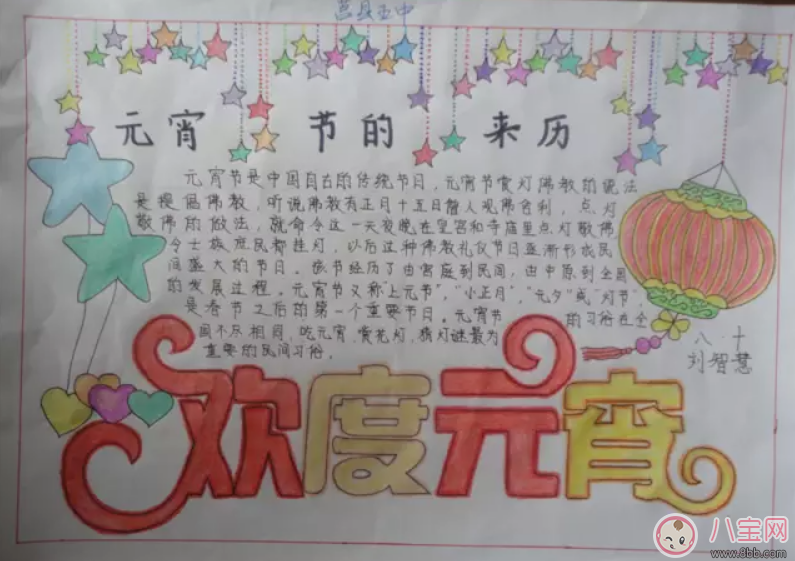 莒县五中
元宵节的来历
元宵节是中国自古的传统节日,元宵节赏灯佛教的说法
是提倡佛教,听说佛教有正月十五日僧人观佛舍利,点灯
敬佛的做法,就命令这一天夜晚在皇宫和寺庙里点灯敬佛
令士族庶民都挂灯,以后这种佛教礼仪节日逐渐形成民
间盛大的节日。该节经历了由宫庭到民间,由中原到全国
的发展过程。元宵节又称"上元节","小正月","元夕"或"灯节",
是春节之后的第一个重要节日。元宵节的习俗在全
国不尽相同,吃元宵、赏花灯,猜灯谜最为
重要的民间习俗,
八·十
刘智慧
欢度元宵
八宝网
www.8bb.com